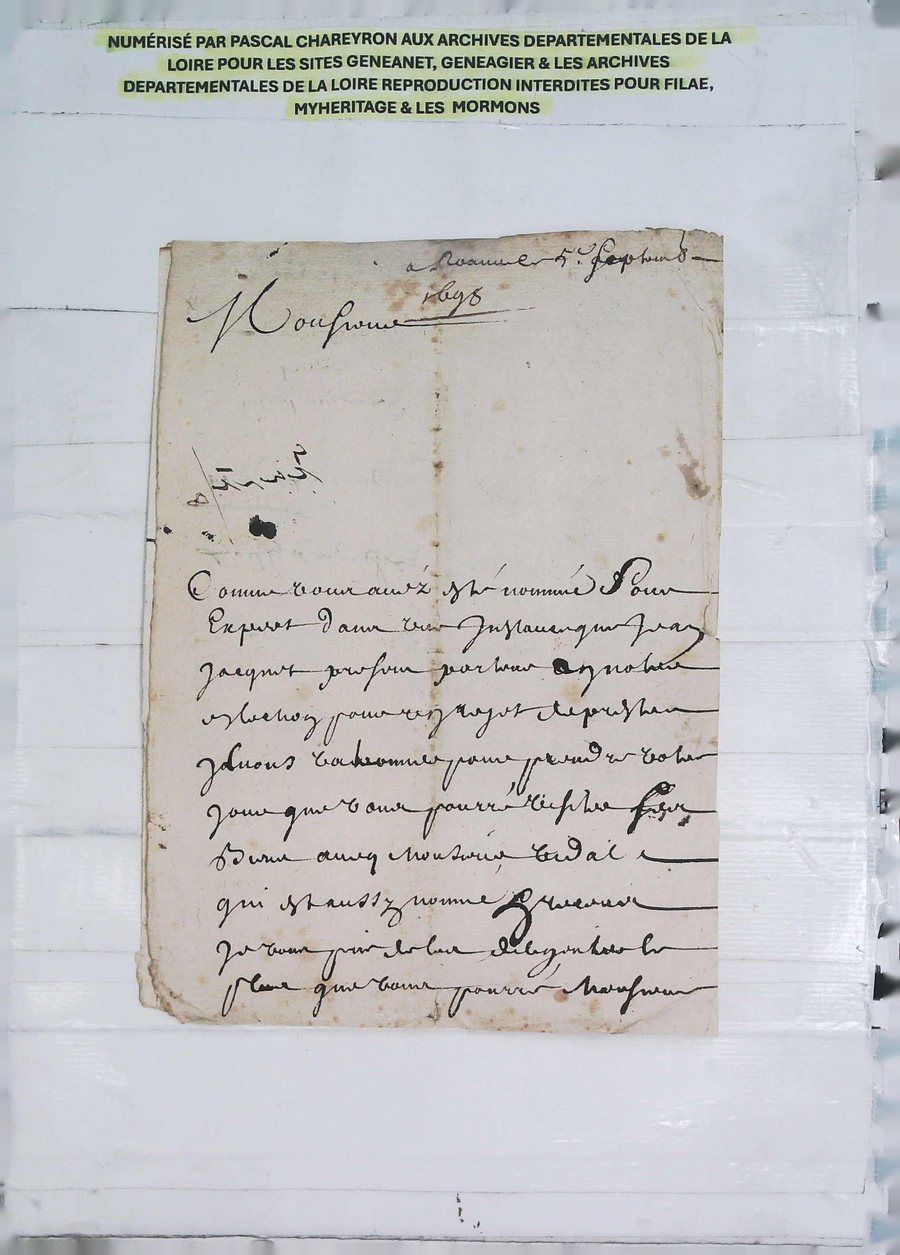 NUMÉRISÉ PAR PASCAL CHAREYRON AUX ARCHIVES DEPARTEMENTALES DE LA
LOIRE POUR LES SITES GENEANET, GENEAGIER & LES ARCHIVES
DEPARTEMENTALES DE LA LOIRE REPRODUCTION INTERDITES POUR FILAE,
MYHERITAGE & LES MORMONS
a Roanne le 5e Septemb
1698
Monsieur
Comme vous avéz esté nommé Pour
Expert dans une Instance que Jean
Jacquet presant porteur a
eslection pour
pour prendre vostre
jour que vous pourré visiter
avecq Monsieur Vidal
qui est aussy nommé
Je vous prie de les diligenter le
plus que vous pourré Monsieur